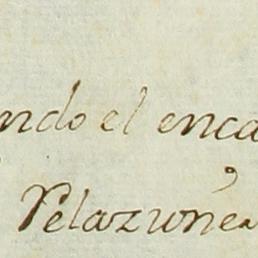 ndo el enca
Pelazunes